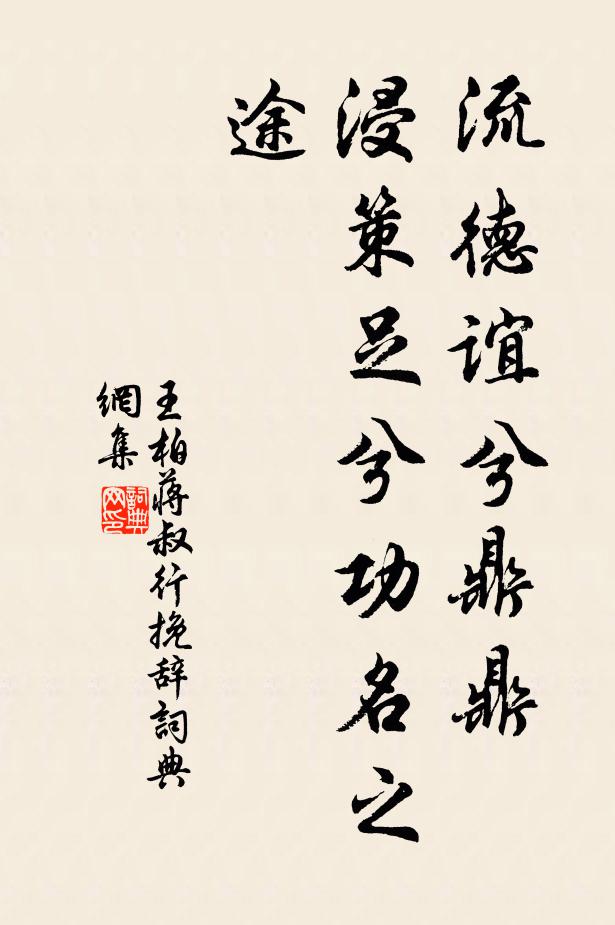 流德誼兮鼎鼎
浸策足兮功名之
途
王柏蔣叔行挽辞詞典
網集
詞典
网印